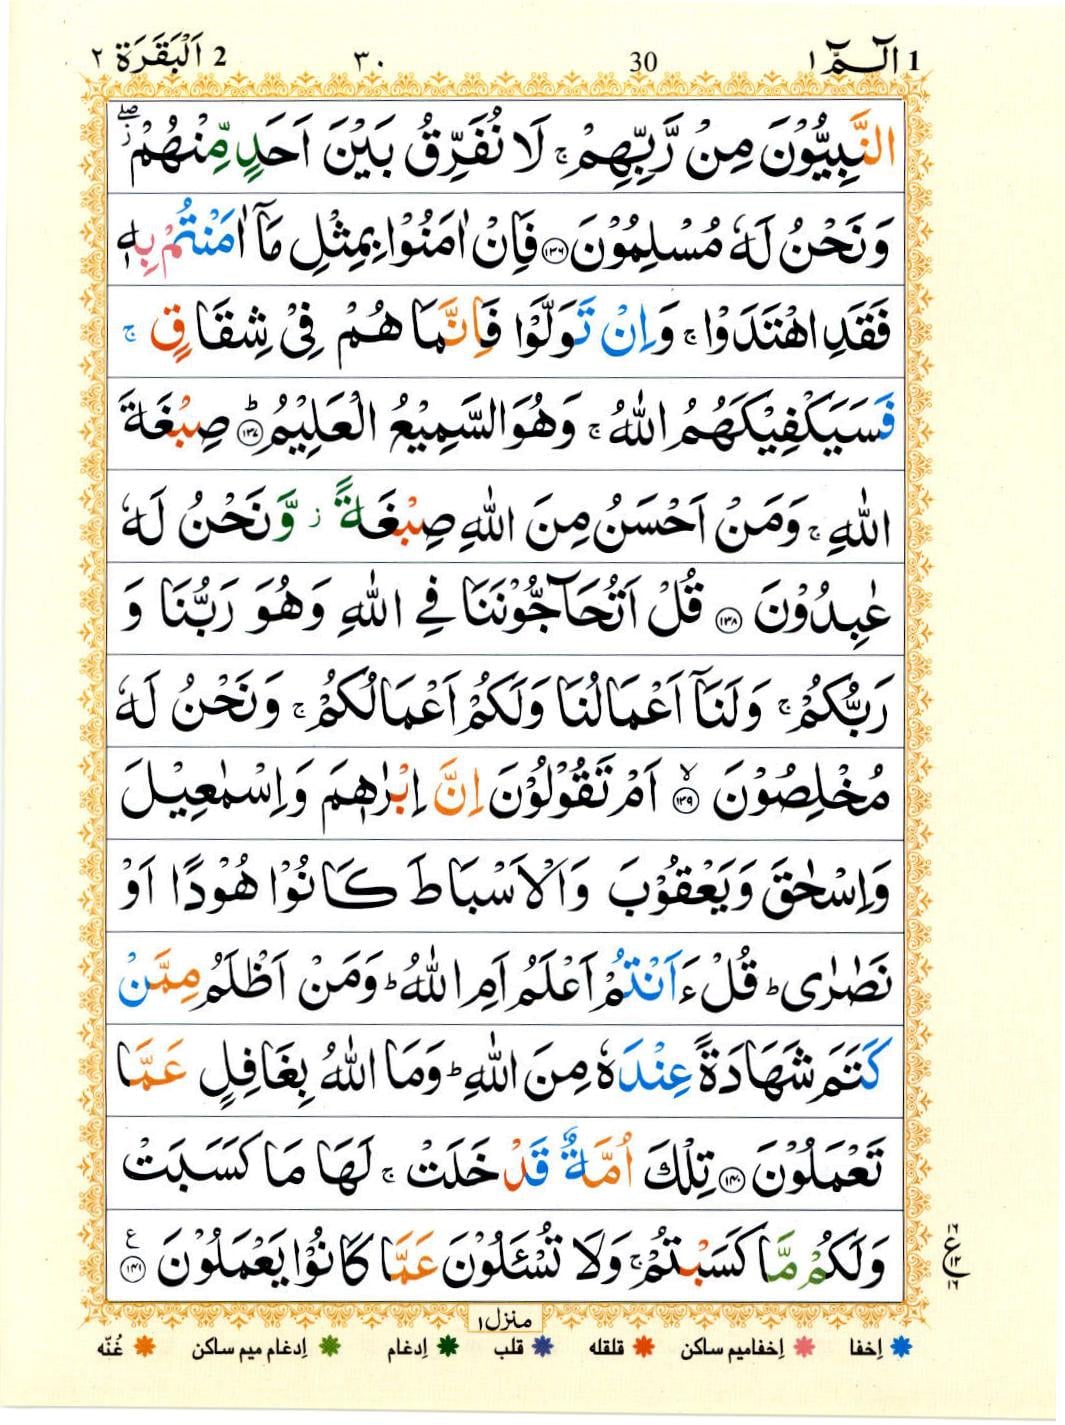 1 الٓـمّٓ ١ 30 ٣٠ 2 اَلْبَقَرَة ٢
النَّبِيُّوْنَ مِنْ رَّبِّهِمْ ۚ لَا نُفَرِّقُ بَيْنَ اَحَدٍ مِّنْهُمْ ۖ ز
وَنَحْنُ لَهٗ مُسْلِمُوْنَ ﴿١٣٦﴾ فَاِنْ اٰمَنُوْا بِمِثْلِ مَآ اٰمَنْتُمْ بِهٖ
فَقَدِ اهْتَدَوْا ۚ وَاِنْ تَوَلَّوْا فَاِنَّمَا هُمْ فِيْ شِقَاقٍ ۚ
فَسَيَكْفِيْكَهُمُ اللّٰهُ ۚ وَهُوَ السَّمِيْعُ الْعَلِيْمُ ؕ ﴿١٣٧﴾ صِبْغَةَ
اللّٰهِ ۚ وَمَنْ اَحْسَنُ مِنَ اللّٰهِ صِبْغَةً ز وَّنَحْنُ لَهٗ
عٰبِدُوْنَ ﴿١٣٨﴾ قُلْ اَتُحَآجُّوْنَنَا فِي اللّٰهِ وَهُوَ رَبُّنَا وَ
رَبُّكُمْ ۚ وَلَنَآ اَعْمَالُنَا وَلَكُمْ اَعْمَالُكُمْ ۚ وَنَحْنُ لَهٗ
مُخْلِصُوْنَ ۙ ﴿١٣٩﴾ اَمْ تَقُوْلُوْنَ اِنَّ اِبْرٰهٖمَ وَاِسْمٰعِيْلَ
وَاِسْحٰقَ وَيَعْقُوْبَ وَالْاَسْبَاطَ كَانُوْا هُوْدًا اَوْ
نَصٰرٰى ؕ قُلْ ءَاَنْتُمْ اَعْلَمُ اَمِ اللّٰهُ ؕ وَمَنْ اَظْلَمُ مِمَّنْ
كَتَمَ شَهَادَةً عِنْدَهٗ مِنَ اللّٰهِ ؕ وَمَا اللّٰهُ بِغَافِلٍ عَمَّا
تَعْمَلُوْنَ ﴿١٤٠﴾ تِلْكَ اُمَّةٌ قَدْ خَلَتْ ۚ لَهَا مَا كَسَبَتْ
وَلَكُمْ مَّا كَسَبْتُمْ ۚ وَلَا تُسْـَٔلُوْنَ عَمَّا كَانُوْا يَعْمَلُوْنَ ع ﴿١٤١﴾
١٦ ع ١٢ ١٦
منزل ١
اِخفا اِخفامیم ساکن قلقله قلب اِدغام اِدغام میم ساکن غُنّه